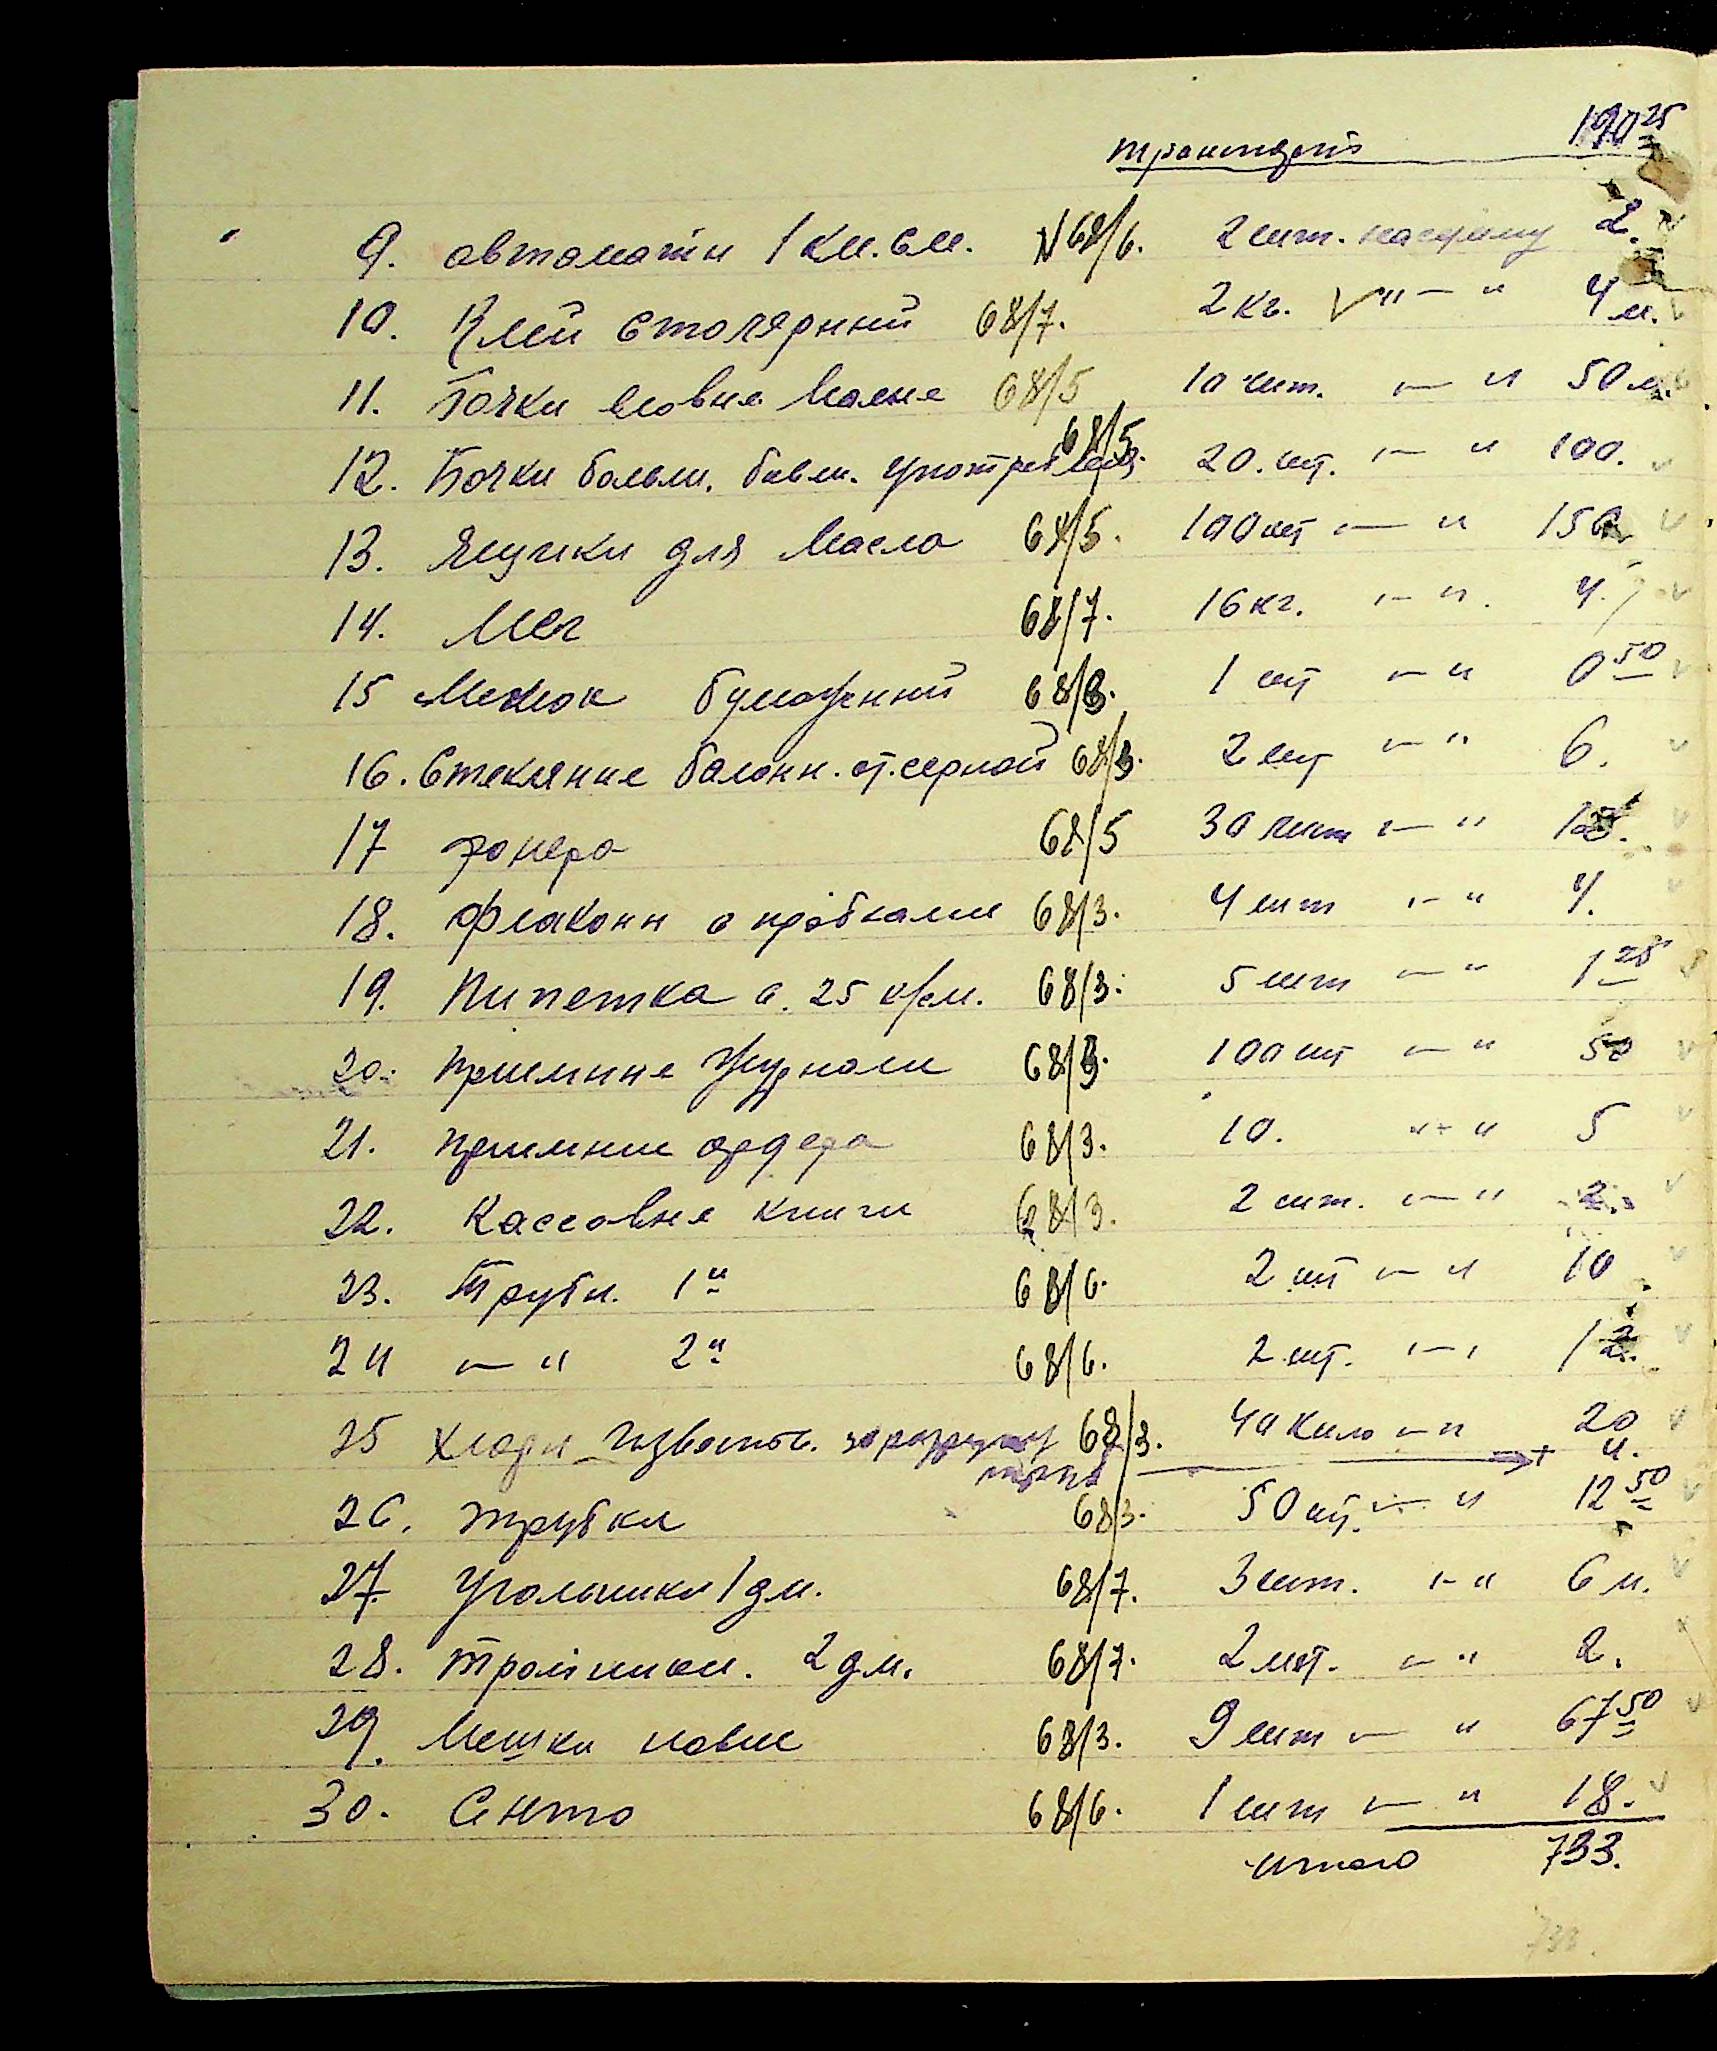 транспорт 190 25
9. автомати 1 км. см. N 68/6. 2 шт. на сумму 2.
10. Клей столярний 68/7. 2 кг. —"— " 4 м.
11. Бочки новые малые 68/5 10 шт. — " 50 м.
12. Бочки больш. бывш. употребления 68/5 20. шт. — " 100.
13. Ящики для масла 68/5. 100 шт — " 150
14. Мел 68/7. 16 кг. — ". 4.
15 Мешок бумажений 68/3. 1 шт — " 0 50
16. Стекляние балони. от. серной 68/3. 2 шт — " 6.
17 фанера 68/5 30 лист — "
18. Флакони с пробками 68/3. 4 шт — " 4.
19. Пипетка с. 25 к/см. 68/3. 5 шт — " 1 25
20. Приемные журнали 68/3. 100 шт — " 50
21. приемние ордера 68/3. 10. — " 5
22. Кассовые книги 68/3. 2 шт. — " 2.
23. Труби. 1" 68/6. 2 шт — " 10
24 — " 2" 68/6. 2 шт. — " 12.
25 Хлорн. известь. 68/3. 40 кило — " 20
26. трубки 68/3. 50 шт. — " 12 50
27. Угольники 1 дм. 68/7. 3 шт. — " 6 м.
28. Тройники. 2 дм. 68/7. 2 шт. — " 2.
29. Мешки новые 68/3. 9 шт — " 67 50
30. Сито 68/6. 1 шт — " 18.
итого 733.
733.